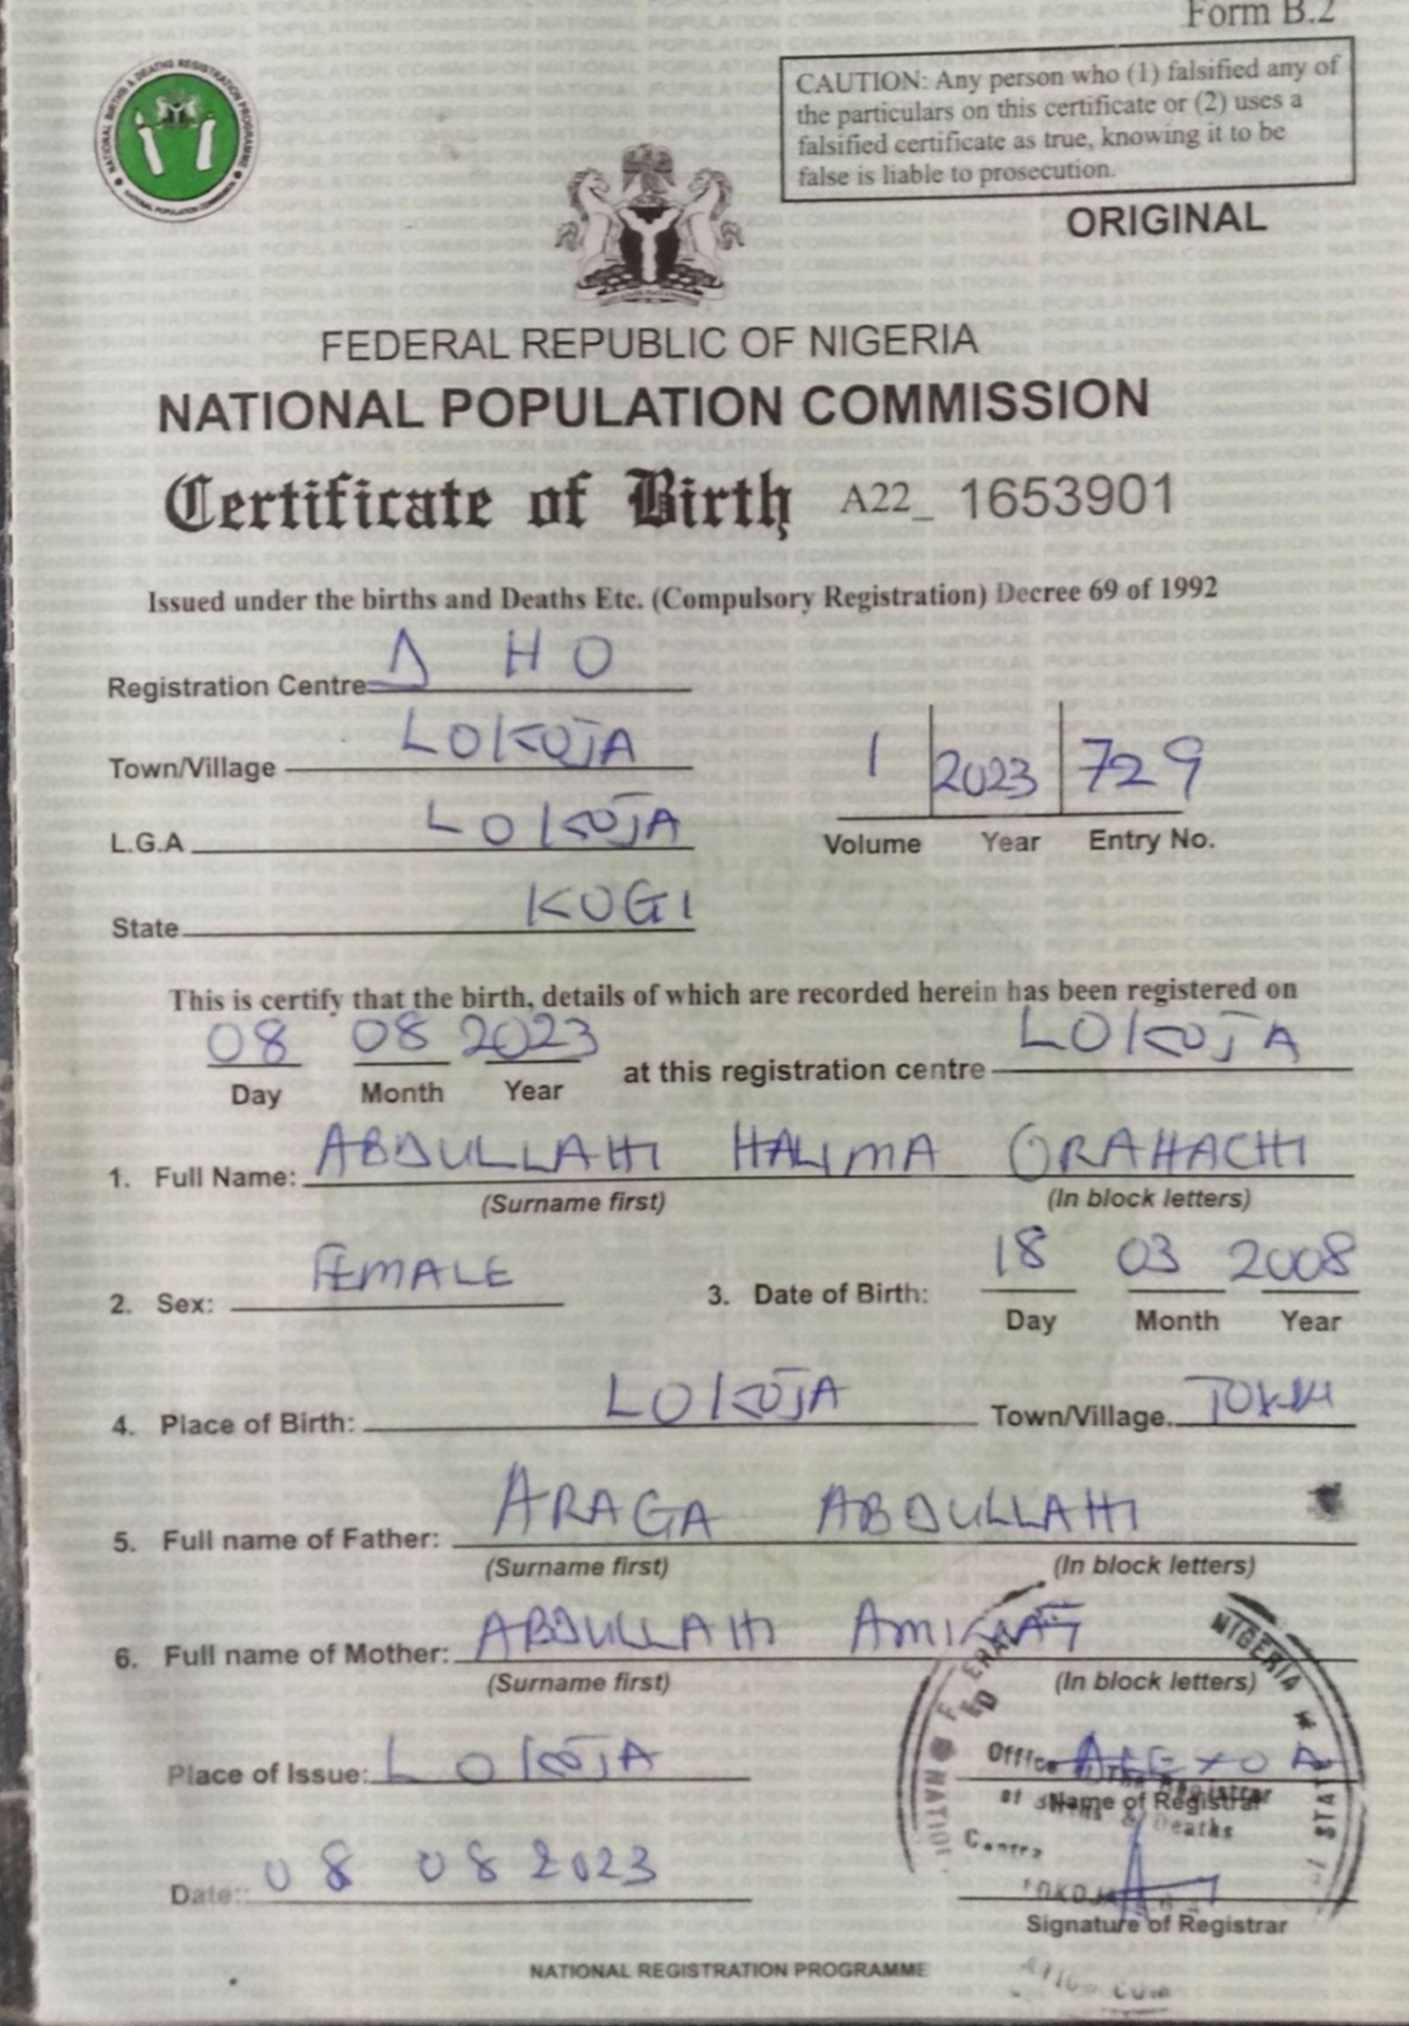 Form B.2
NATIONAL BIRTHS & DEATHS REGISTRATION PROGRAMME
NATIONAL POPULATION COMMISSION
CAUTION: Any person who (1) falsified any of
the particulars on this certificate or (2) uses a
falsified certificate as true, knowing it to be
false is liable to prosecution.
ORIGINAL
FEDERAL REPUBLIC OF NIGERIA
NATIONAL POPULATION COMMISSION
Certificate of Birth A22_ 1653901
Issued under the births and Deaths Etc. (Compulsory Registration) Decree 69 of 1992
Registration Centre D H O
Town/Village LOKOJA
1 2023 729
L.G.A LOKOJA
Volume Year Entry No.
State KOGI
This is certify that the birth, details of which are recorded herein has been registered on
08 08 2023 at this registration centre LOKOJA
Day Month Year
1. Full Name: ABDULLAHI HALIMA ORAHACHI
(Surname first) (In block letters)
2. Sex: FEMALE 3. Date of Birth: 18 03 2008
Day Month Year
4. Place of Birth: LOKOJA Town/Village. TOWN
5. Full name of Father: ARAGA ABDULLAHI
(Surname first) (In block letters)
6. Full name of Mother: ABDULLAHI AMINAT
(Surname first) (In block letters)
NIGERIA
Place of Issue: LOKOJA
Office
Name of Registrar
Deaths
STATE
Date: 08 08 2023
Signature of Registrar
NATIONAL REGISTRATION PROGRAMME